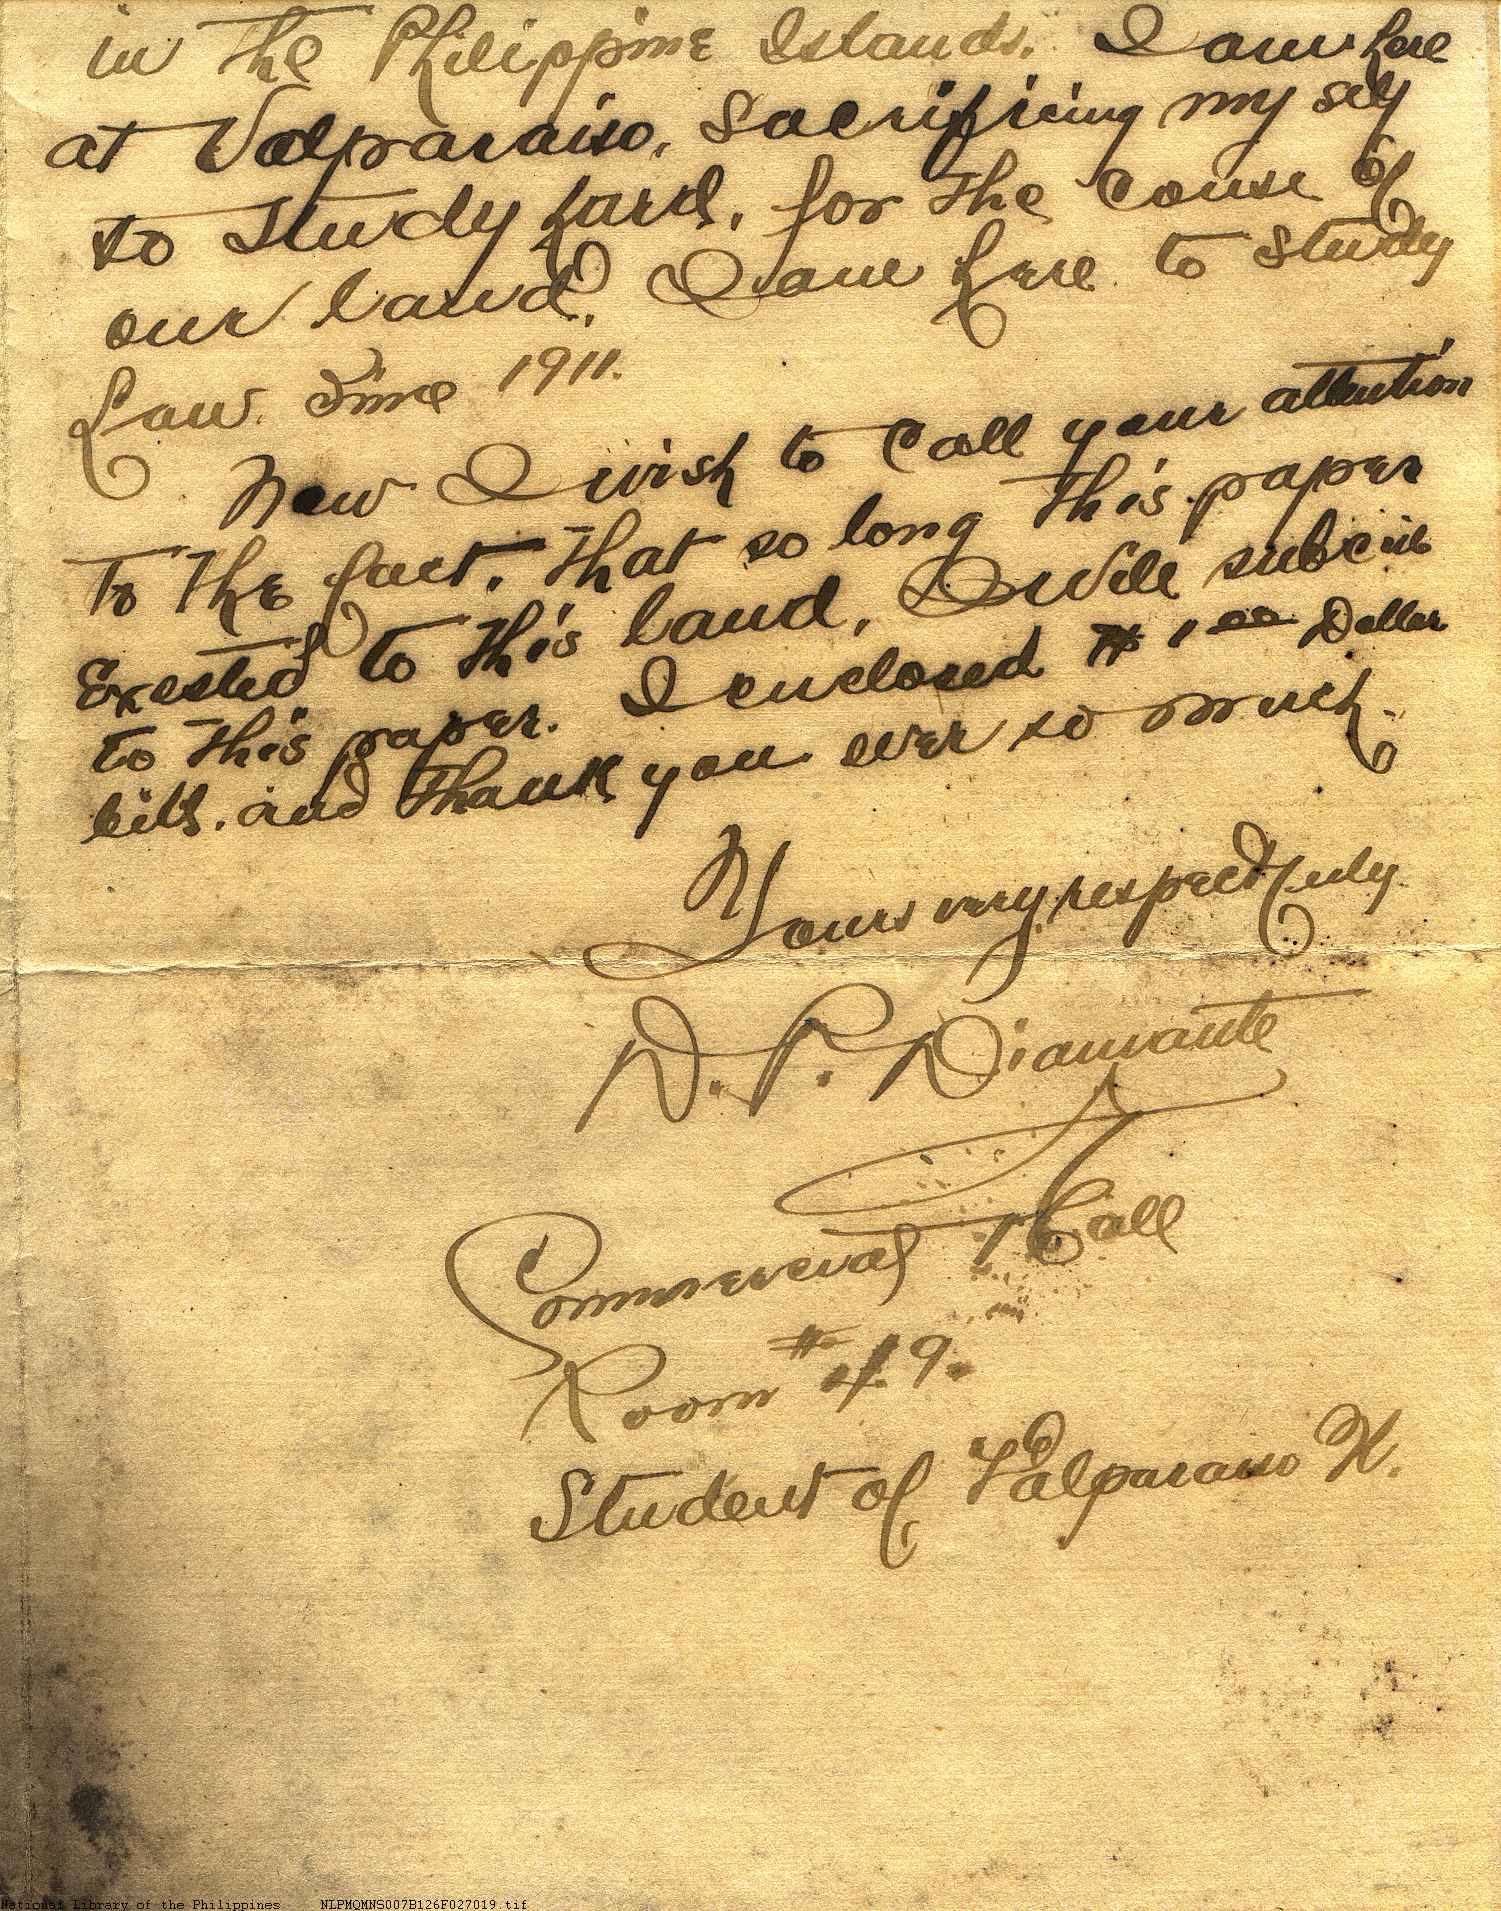 in the Philippine Islands. I am here
at Valparaiso, Sacrificing my self
to study hard, for the couse of
our land, I am here to study
Law since 1911.
Now I wish to call your attention
to the fact, that so long this paper
Exested to this land, I will subcrib
to this paper. I enclosed # 1 00 Dollar
bill. and thank you ever so much.
Yours very respectfuly
D. P. Diamante
Commercial Hall
Room # 49.
Student of Valparaiso U.
National Library of the Philippines NLPMQMNS007B126F027019.tif